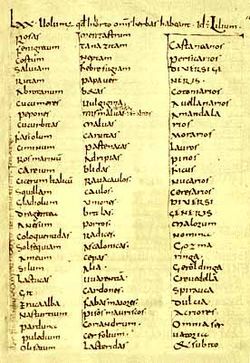 LXX. Uolumus qd Inhorto oms herbas habeant. Id e Lilium
Rosas
Fenigrecum
Costum
Saluiam
Rutam
Abrotanum
Cucumeres
Pepones
Cucurbitas
Fasiolum
Ciminum
Rosmarinum
Careium
Cicerum Italicū
Squillam
Gladiolum
Dragantea
Anesum
Coloquentidas
Solsequiam
Ameum
Silum
Lactucas
Git
Eruca alba
Nasturtium
Parduna
Puledium
Olisatum
mentastrum
Tanazitam
Neptam
Febrefugiam
Papauer
betas
Uulgigina
mismaluas
maluas
Caruitas
Pastenacas
Adripias
blidas
Rauacaulos
Caulos
Uniones
britlas
Porros
Radices
Ascalonicas
Cepas
Alia
Uuarentia
Cardones
Fabas maiores
Pisos mauriscos
Coriandrum
Cerfolium
Lacteridas
Castanearios
Persicarios
DIVERSI GE
NERIS
Cotoniarios
Auellanarios
Amandala
rios
Morarios
Lauros
Pinos
Ficus
Nucarios
Ceresarios
DIVERSI
GENERIS
Malorum
Nomina
Gozma
ringa
Geroldinga
Creuedella
Spirauca
Dulcia
Acriores
Omnia ser
uatoria
& subito